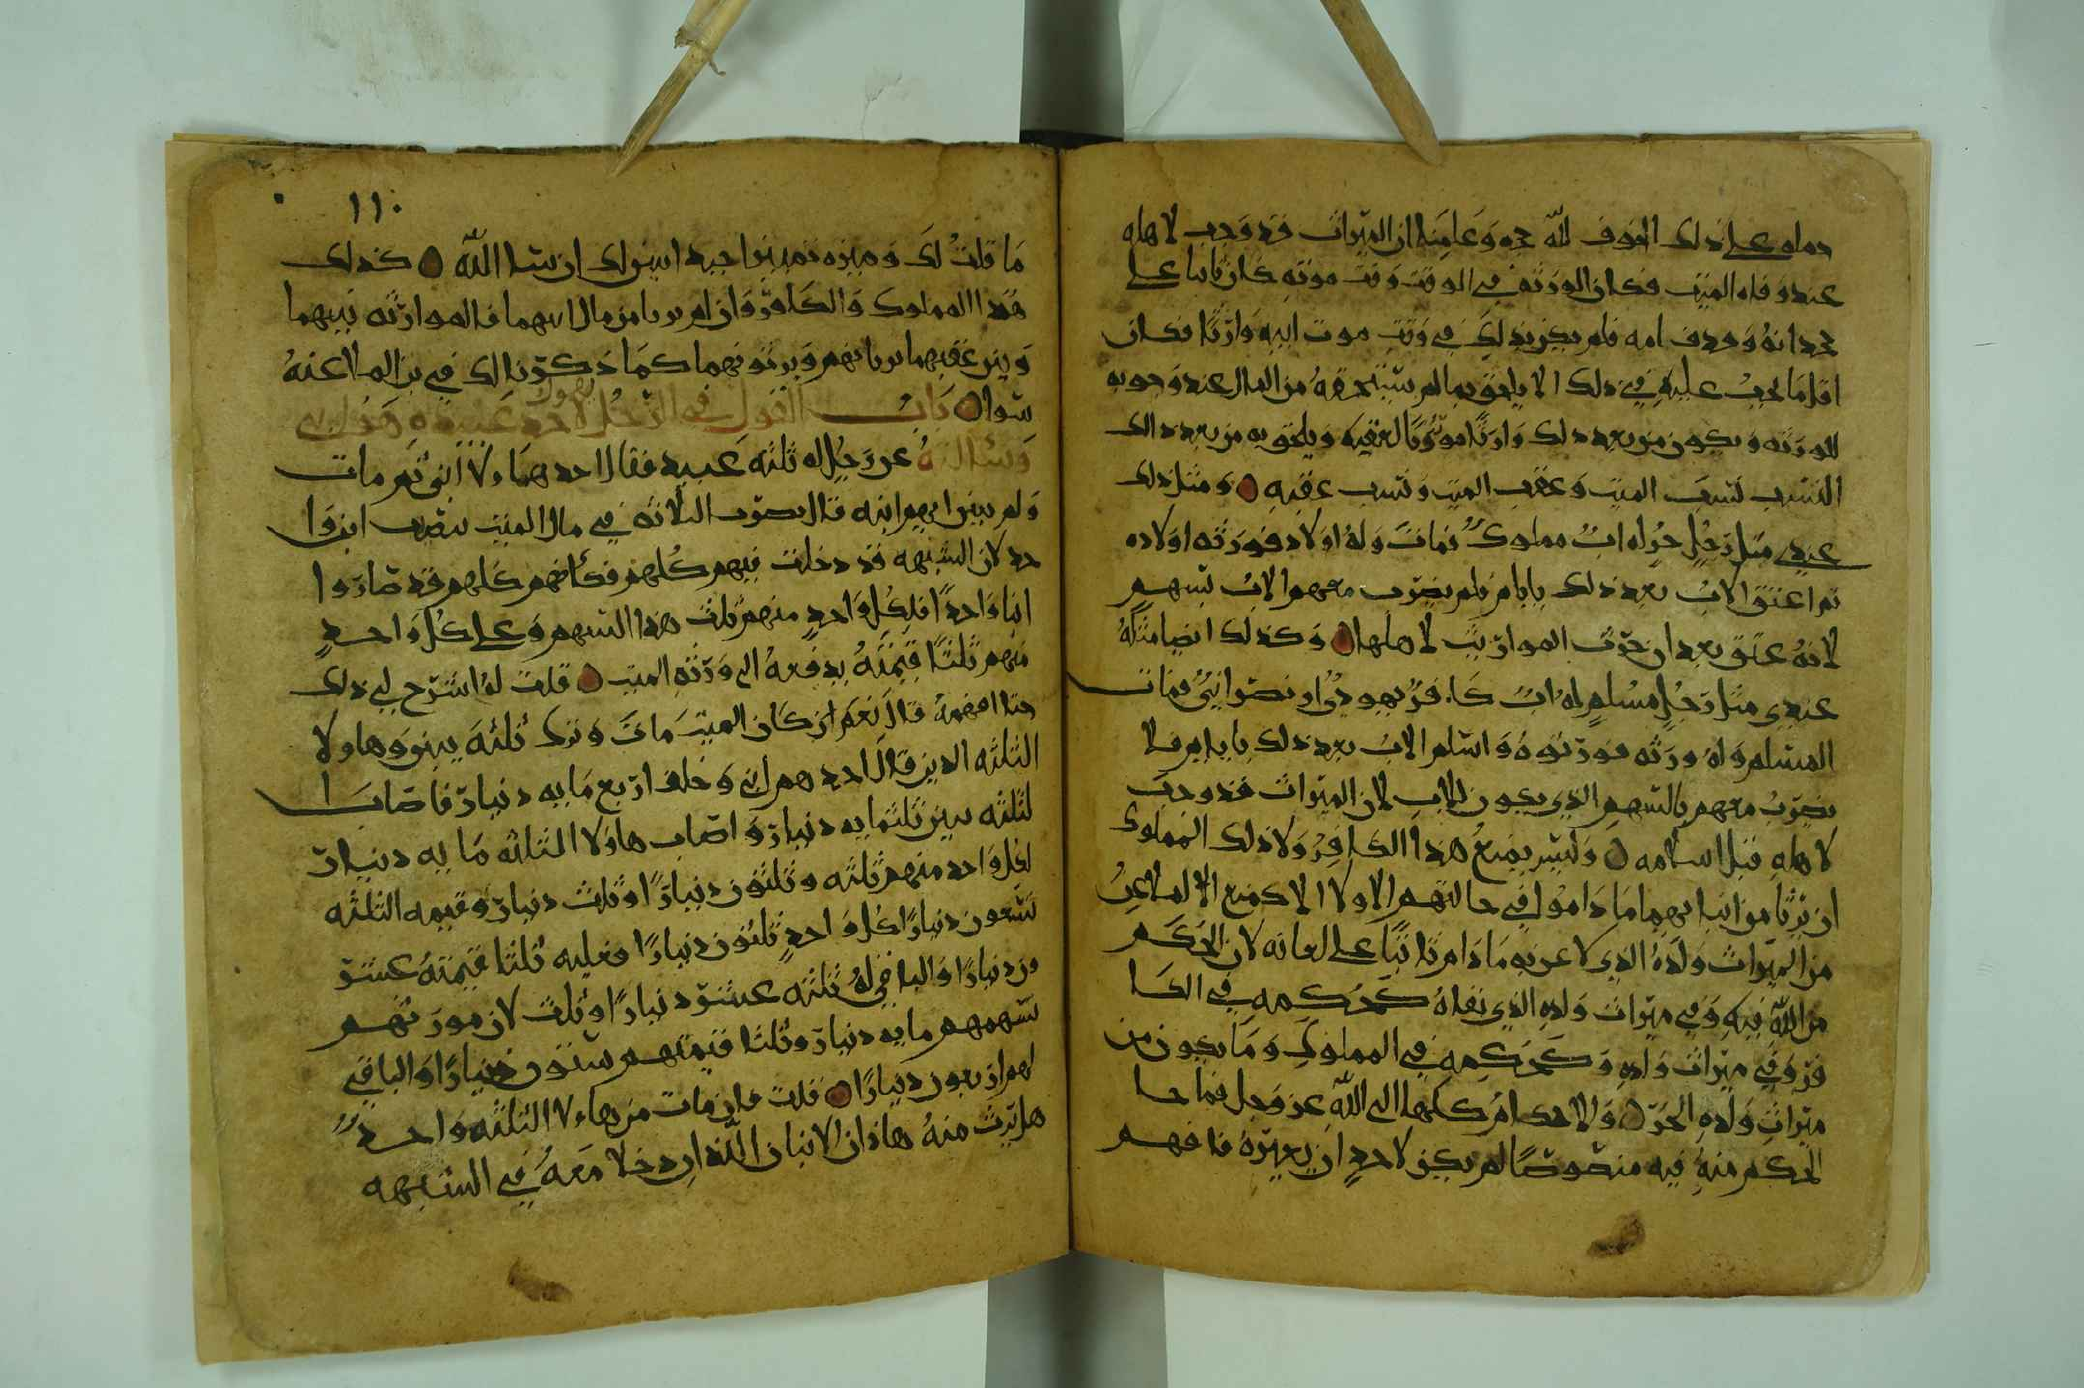 عند وفاه الميت فكان الورثه في الوقت وقت موته كان ثابتا على
جحدانه وقدف امه فلم يكن بذلك في وقت موت ابيه وارثا فكان
اقل ما يجب عليه في ذلك الا يلحق بما لم يستحقه من المال عند وجوبه
للورثه ويكون من بعد ذلك وارثا موروثا لعقبه ويلحق به من بعد ذالك
النسب نسب الميت وعقب الميت ونسب عقبه ومثل ذلك
عندي مثل رجل حر له اب مملوك فمات وله اولاد فورثه اولاده
ثم اعتق الاب بعد ذلك بايام فلم يضرب معهم الاب بسهم
لانه عتق بعد ان حزت المواريث لاهلها وكذلك ايضا مثله
عندي مثل رجل مسلم له اب كافر يهودي او نصراني فمات
المسلم وله ورثه فورثوه واسلم الاب بعد ذلك بايام فلا
يضرب معهم بالسهم الذي يكون للاب لان الميراث قد وجب
لاهله قبل اسلامه وليس يمنع هذا الكافر ولا ذلك المملوك
ان يرثا من ابنايهما ما داموا في حالتهم الاولا الا كمنع الملاعن
من الميراث ولده الذي لاعن به ما دام ثابتا على لعانه لان الحكم
من الله فيه وفي ميراث ولده الذي نفاه كحكمه في الكا
فر وفي ميراث ولده وكحكمه في المملوك وما يكون من
ميراث ولده الحر والاحكام كلها الى الله عز وجل فما جا
الحكم منه فيه منصوصا لم يكن لاحد ان يغيره فافهم
١١٠
ما قلت لك وميزه تميزا جيدا يبن لك ان شا الله كذلك
هذا المملوك والكافر وان لم يرثا من مال ابنيهما فالموارثه بينهما
وبين عقبهما يرثانهم ويرثونهما كما ذكرنا لك في بن الملاعنه
سوا باب القول في الرجل يقول لاحد عبيده هو ابني
وسألته عن رجل له ثلثه عبيد فقال احد هاولا ابني ثم مات
ولم يبين ايهم ابنه قال يضرب الثلاثه في مال الميت بنصيب ابن وا
حد لان الشبهه قد دخلت فيهم كلهم فكأنهم كلهم قد صاروا
ابنا واحدا فلكل واحد منهم ثلث هذا السهم وعلى كل واحد
منهم ثلثا قيمته يدفعه الى ورثه الميت قلت له اشرح لي ذلك
حتا افهمه قال نعم ان كان الميت مات وترك ثلثه بنين وهاولا
الثلثه الذين قال احدهم ابني وخلف اربع مايه دينار فاصاب ا
لثلثه بنين ثلثمايه دينار واصاب هاولا الثلثه مايه دينار
لكل واحد منهم ثلثه وثلثون دينارا وثلث دينار وقيمه الثلثه
تسعون دينارا كل واحد ثلثون دينارا فعليه ثلثا قيمته عشر
ون دينارا والباقي له ثلثه عشر دينارا وثلث لان مورثهم
سهمهم مايه دينار وثلثا قيمتهم ستون دينارا والباقي
لهم اربعون دينارا قلت فان مات من هاولا الثلثه واحد
هل يرث منه هاذان الاثنان اللذان دخلا معه في الشبهه